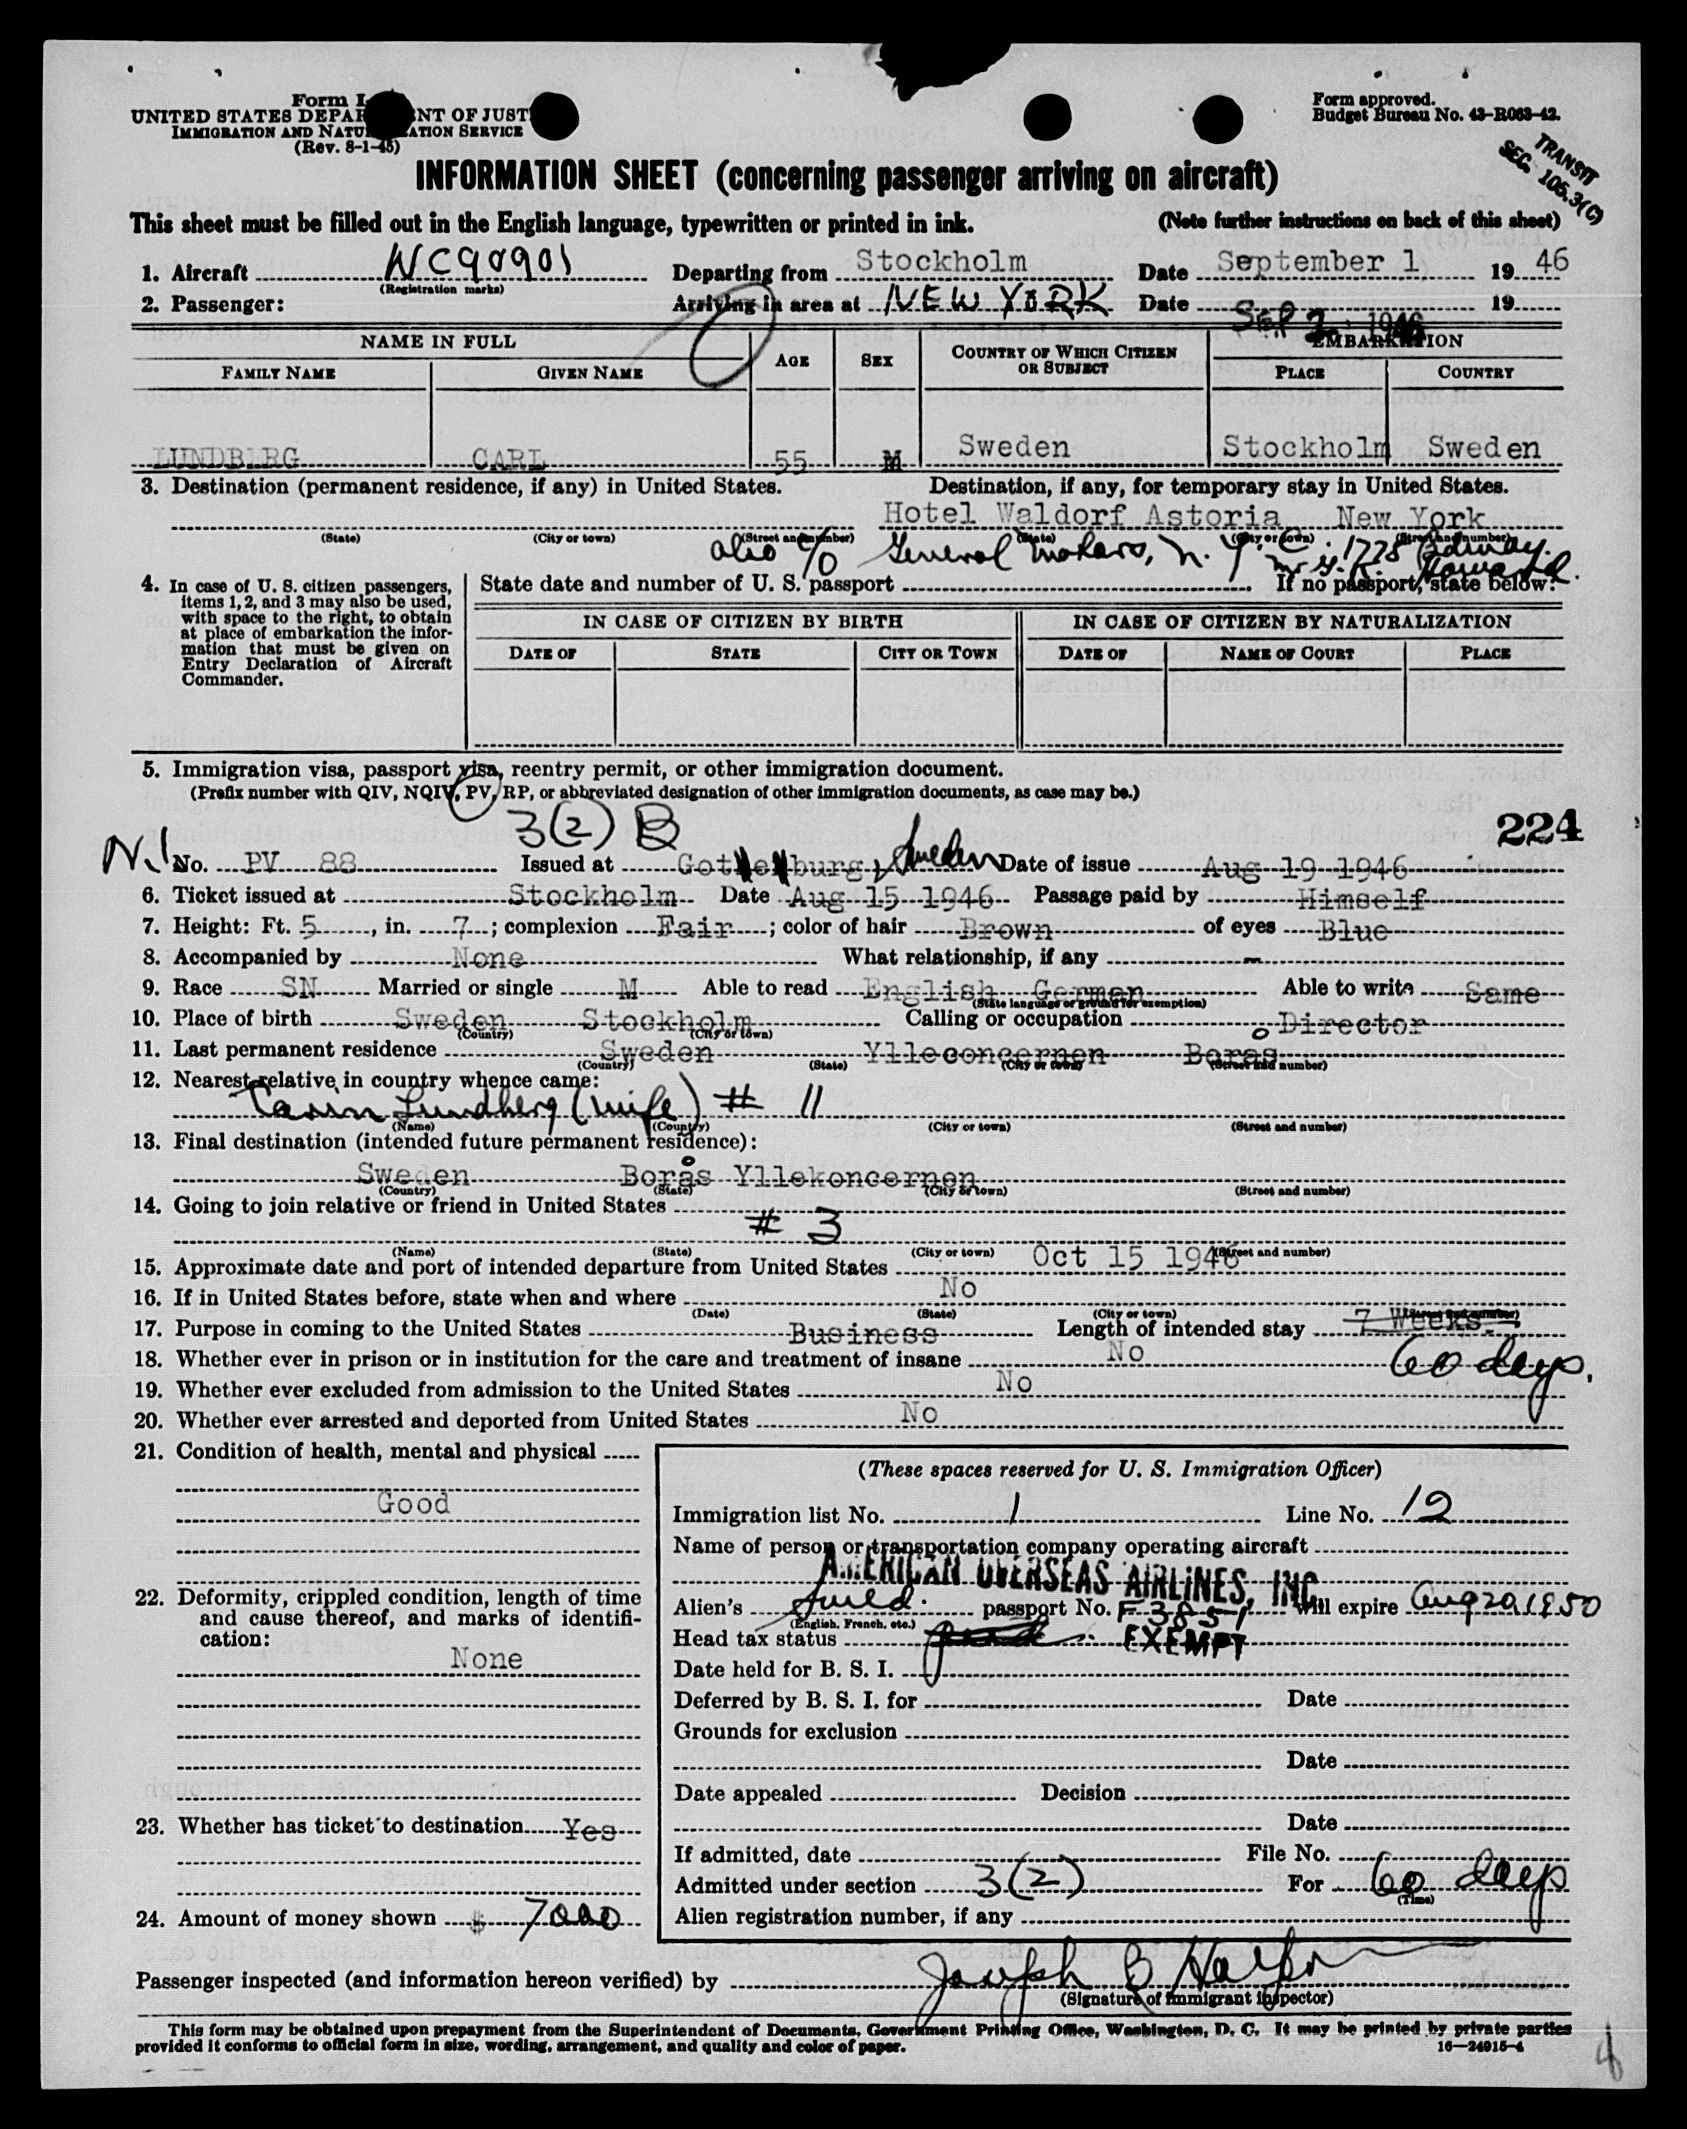 Form I-
UNITED STATES DEPAR NT OF JUST
IMMIGRATION AND NATU ATION SERVICE
(Rev. 8-1-45)
Form approved.
Budget Bureau No. 43-R063-42.
TRANSIT
SEC. 105.3(C)
INFORMATION SHEET (concerning passenger arriving on aircraft)
This sheet must be filled out in the English language, typewritten or printed in ink. (Note further instructions on back of this sheet)
1. Aircraft NC90901 Departing from Stockholm Date September 1 1946
(Registration marks)
2. Passenger: Arriving in area at NEW YORK Date 19
SEP 2 1946
NAME IN FULL AGE SEX COUNTRY OF WHICH CITIZEN OR SUBJECT EMBARKATION
FAMILY NAME GIVEN NAME PLACE COUNTRY
LUNDBERG CARL 55 M Sweden Stockholm Sweden
3. Destination (permanent residence, if any) in United States. Destination, if any, for temporary stay in United States.
Hotel Waldorf Astoria New York
(State) (City or town) (Street and number) (State) (City or town) (Street and number)
also c/o General Motors, N.Y.C. 1775 Bdway.
Mr
4. In case of U. S. citizen passengers, items 1, 2, and 3 may also be used, with space to the right, to obtain at place of embarkation the information that must be given on Entry Declaration of Aircraft Commander.
State date and number of U. S. passport If no passport, state below:
IN CASE OF CITIZEN BY BIRTH IN CASE OF CITIZEN BY NATURALIZATION
DATE OF STATE CITY OR TOWN DATE OF NAME OF COURT PLACE
5. Immigration visa, passport visa, reentry permit, or other immigration document.
(Prefix number with QIV, NQIV, PV, RP, or abbreviated designation of other immigration documents, as case may be.)
3(2) B
224
No. PV 88 Issued at Gothenburg, Sweden Date of issue Aug 19 1946
6. Ticket issued at Stockholm Date Aug 15 1946 Passage paid by Himself
7. Height: Ft. 5, in. 7; complexion Fair; color of hair Brown of eyes Blue
8. Accompanied by None What relationship, if any -
9. Race SN Married or single M Able to read English German Able to write Same
(State language or ground for exemption)
10. Place of birth Sweden Stockholm Calling or occupation Director
(Country) (City or town)
11. Last permanent residence Sweden Ylleconcernen Borås
(Country) (State) (City or town) (Street and number)
12. Nearest relative in country whence came:
Carin Lundberg (wife) # 11
(Name) (Country) (City or town) (Street and number)
13. Final destination (intended future permanent residence):
Sweden Borås Yllekoncernen
(Country) (State) (City or town) (Street and number)
14. Going to join relative or friend in United States
# 3
(Name) (State) (City or town) (Street and number)
15. Approximate date and port of intended departure from United States Oct 15 1946
16. If in United States before, state when and where No
(Date) (State) (City or town) (Street and number)
17. Purpose in coming to the United States Business Length of intended stay 7 Weeks.
60 days.
18. Whether ever in prison or in institution for the care and treatment of insane No
19. Whether ever excluded from admission to the United States No
20. Whether ever arrested and deported from United States No
21. Condition of health, mental and physical
Good
22. Deformity, crippled condition, length of time and cause thereof, and marks of identification:
None
23. Whether has ticket to destination Yes
24. Amount of money shown $ 7000
(These spaces reserved for U. S. Immigration Officer)
Immigration list No. 1 Line No. 12
Name of person or transportation company operating aircraft
AMERICAN OVERSEAS AIRLINES, INC.
Alien's Swed. passport No. F 3851 will expire Aug 20, 1950
(English, French, etc.)
Head tax status EXEMPT
Date held for B. S. I.
Deferred by B. S. I. for Date
Grounds for exclusion
Date
Date appealed Decision
Date
If admitted, date File No.
Admitted under section 3(2) For 60 days
(Time)
Alien registration number, if any
Passenger inspected (and information hereon verified) by Joseph B
(Signature of immigrant inspector)
This form may be obtained upon prepayment from the Superintendent of Documents, Government Printing Office, Washington, D. C. It may be printed by private parties
provided it conforms to official form in size, wording, arrangement, and quality and color of paper.
16—24915-4